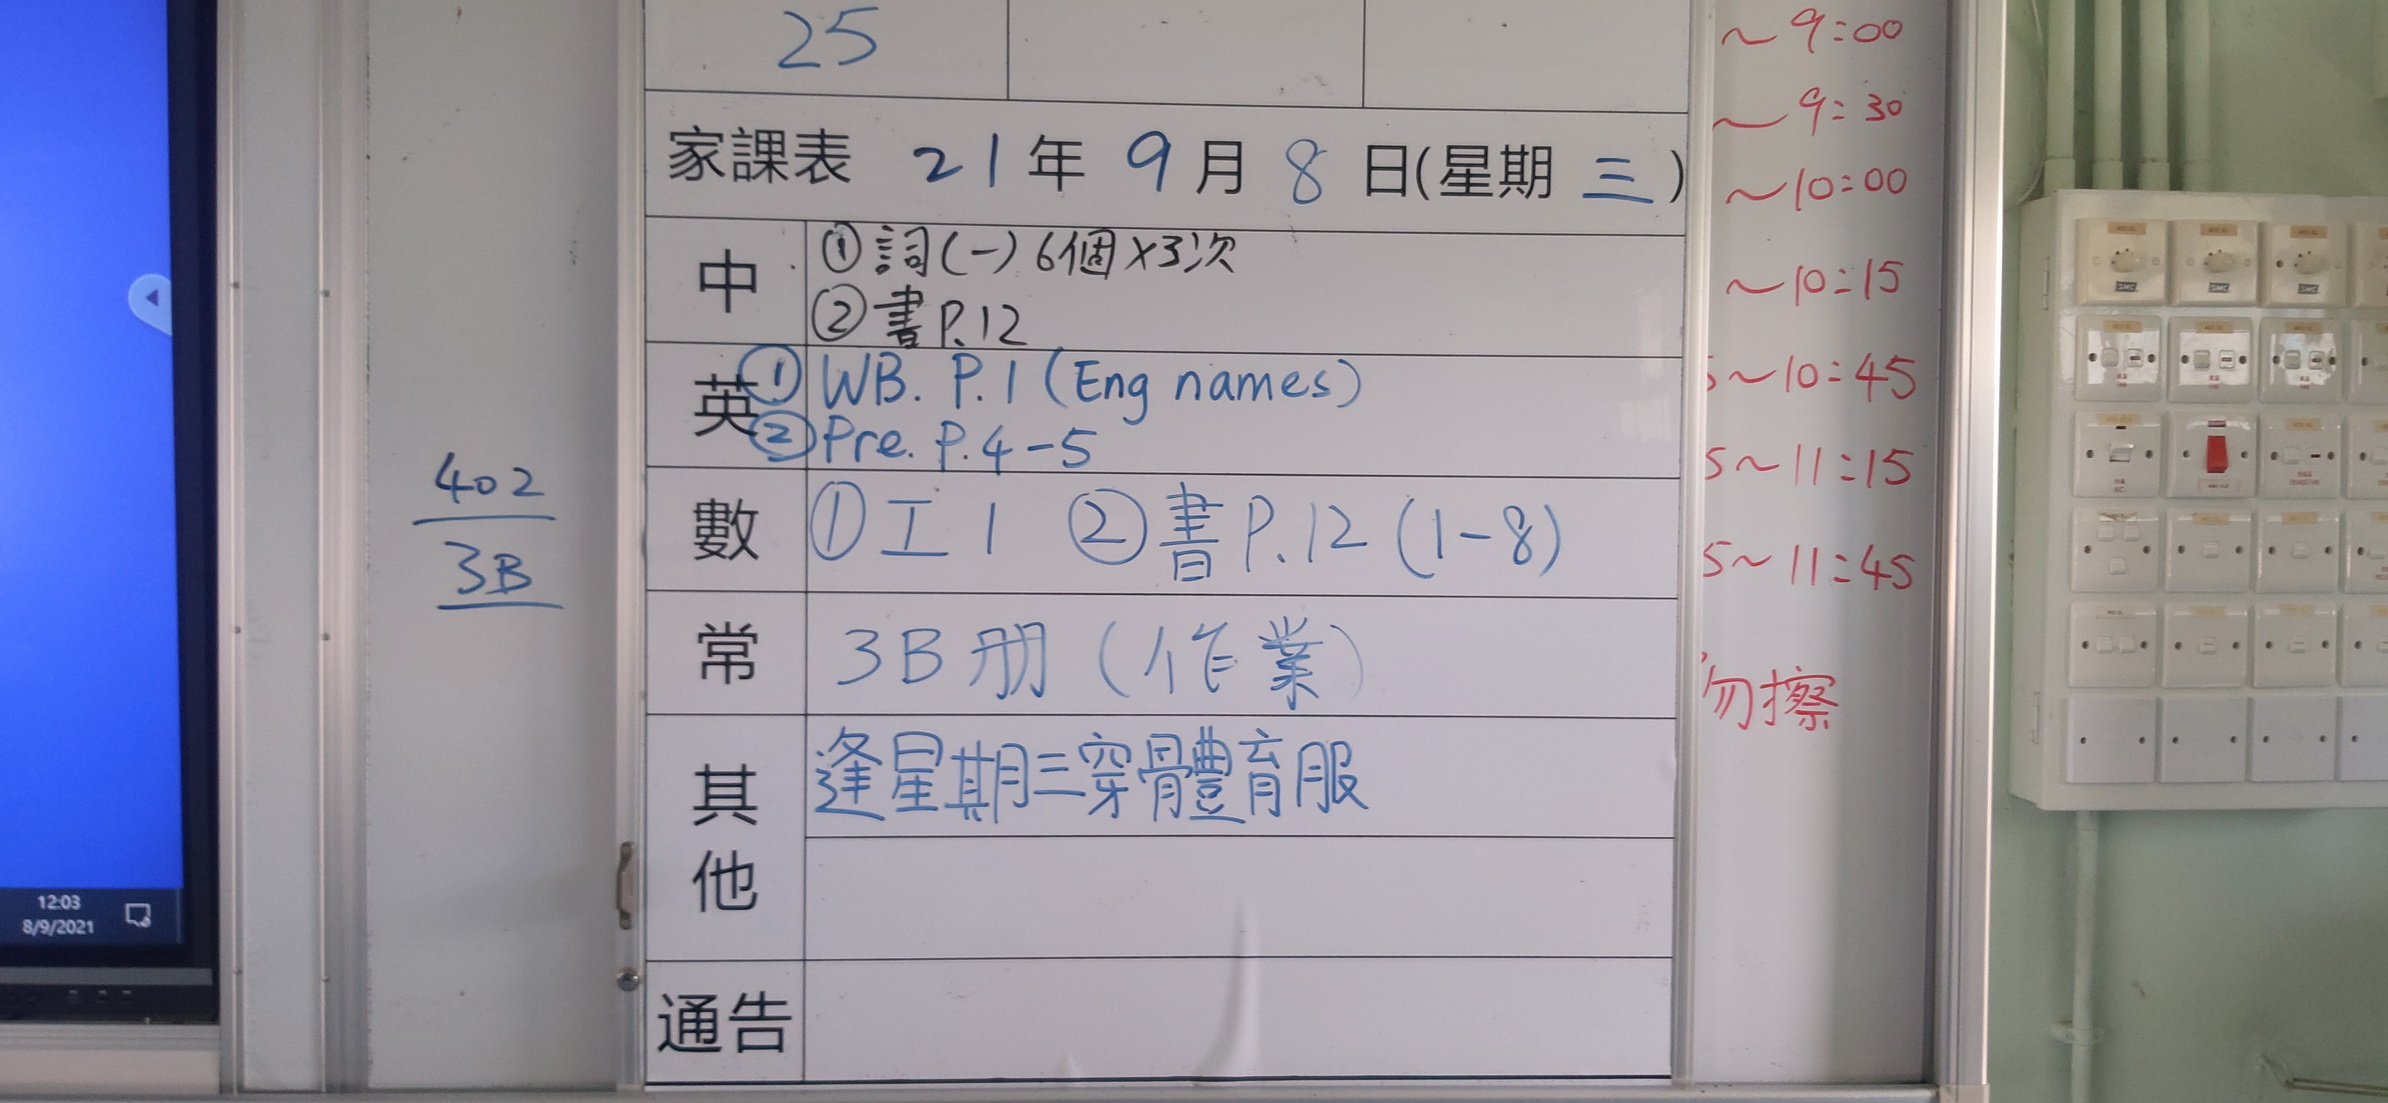 25
家課表 21年 9月 8日(星期 三)
中 ①詞(一)6個×3次
②書P.12
英 ①WB. P.1 (Eng names)
②Pre. P.4-5
數 ①工1 ②書P.12 (1-8)
常 3B冊 (作業)
其他 逢星期三穿體育服
通告
402
3B
12:03
8/9/2021
~9:00
~9:30
~10:00
~10:15
5~10:45
5~11:15
5~11:45
勿擦